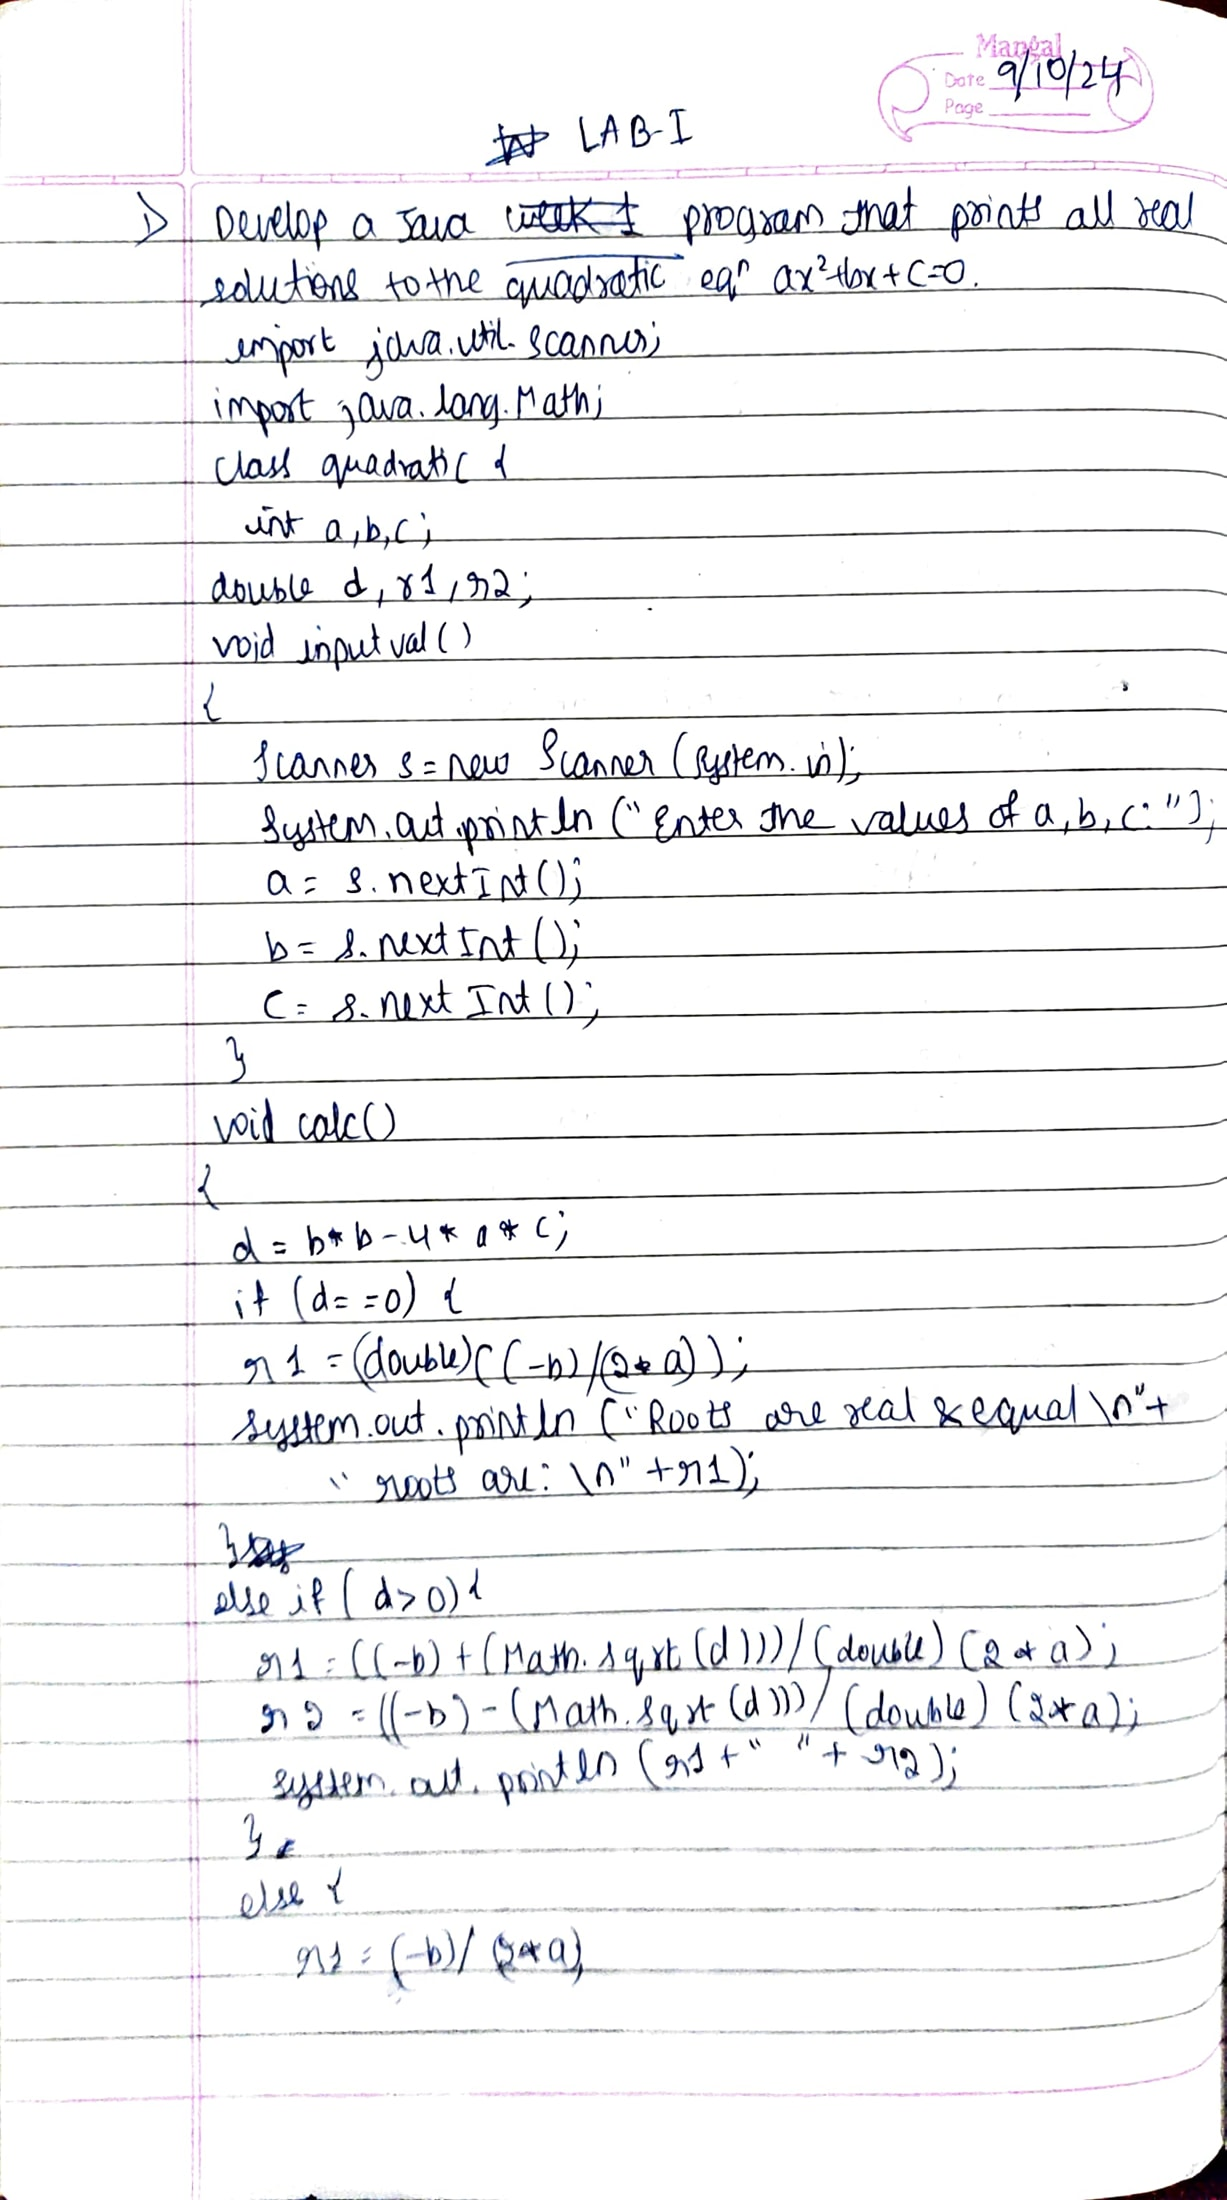 Mangal
Date 9/10/24
Page
LAB-I
1) Develop a Java week 1 program that prints all real
solutions to the quadratic eqn ax²+bx+c=0.
import java.util.scanner;
import java.lang.Math;
class quadratic {
int a,b,c;
double d, r1, r2;
void inputval()
{
Scanner s = new Scanner (System.in);
System.out.println ("Enter the values of a,b,c:");
a = s.nextInt();
b = s.nextInt();
c = s.nextInt();
}
void calc()
{
d = b*b-4*a*c;
if (d==0) {
r1 = (double)((-b)/(2*a));
System.out.println ("Roots are real & equal \n"+
"roots are: \n" +r1);
}
else if (d>0){
r1 = ((-b)+(Math.sqrt(d)))/(double)(2*a);
r2 = ((-b)-(Math.sqrt(d)))/(double)(2*a);
System.out.println (r1+" "+r2);
}
else {
r1 = (-b)/(2*a);